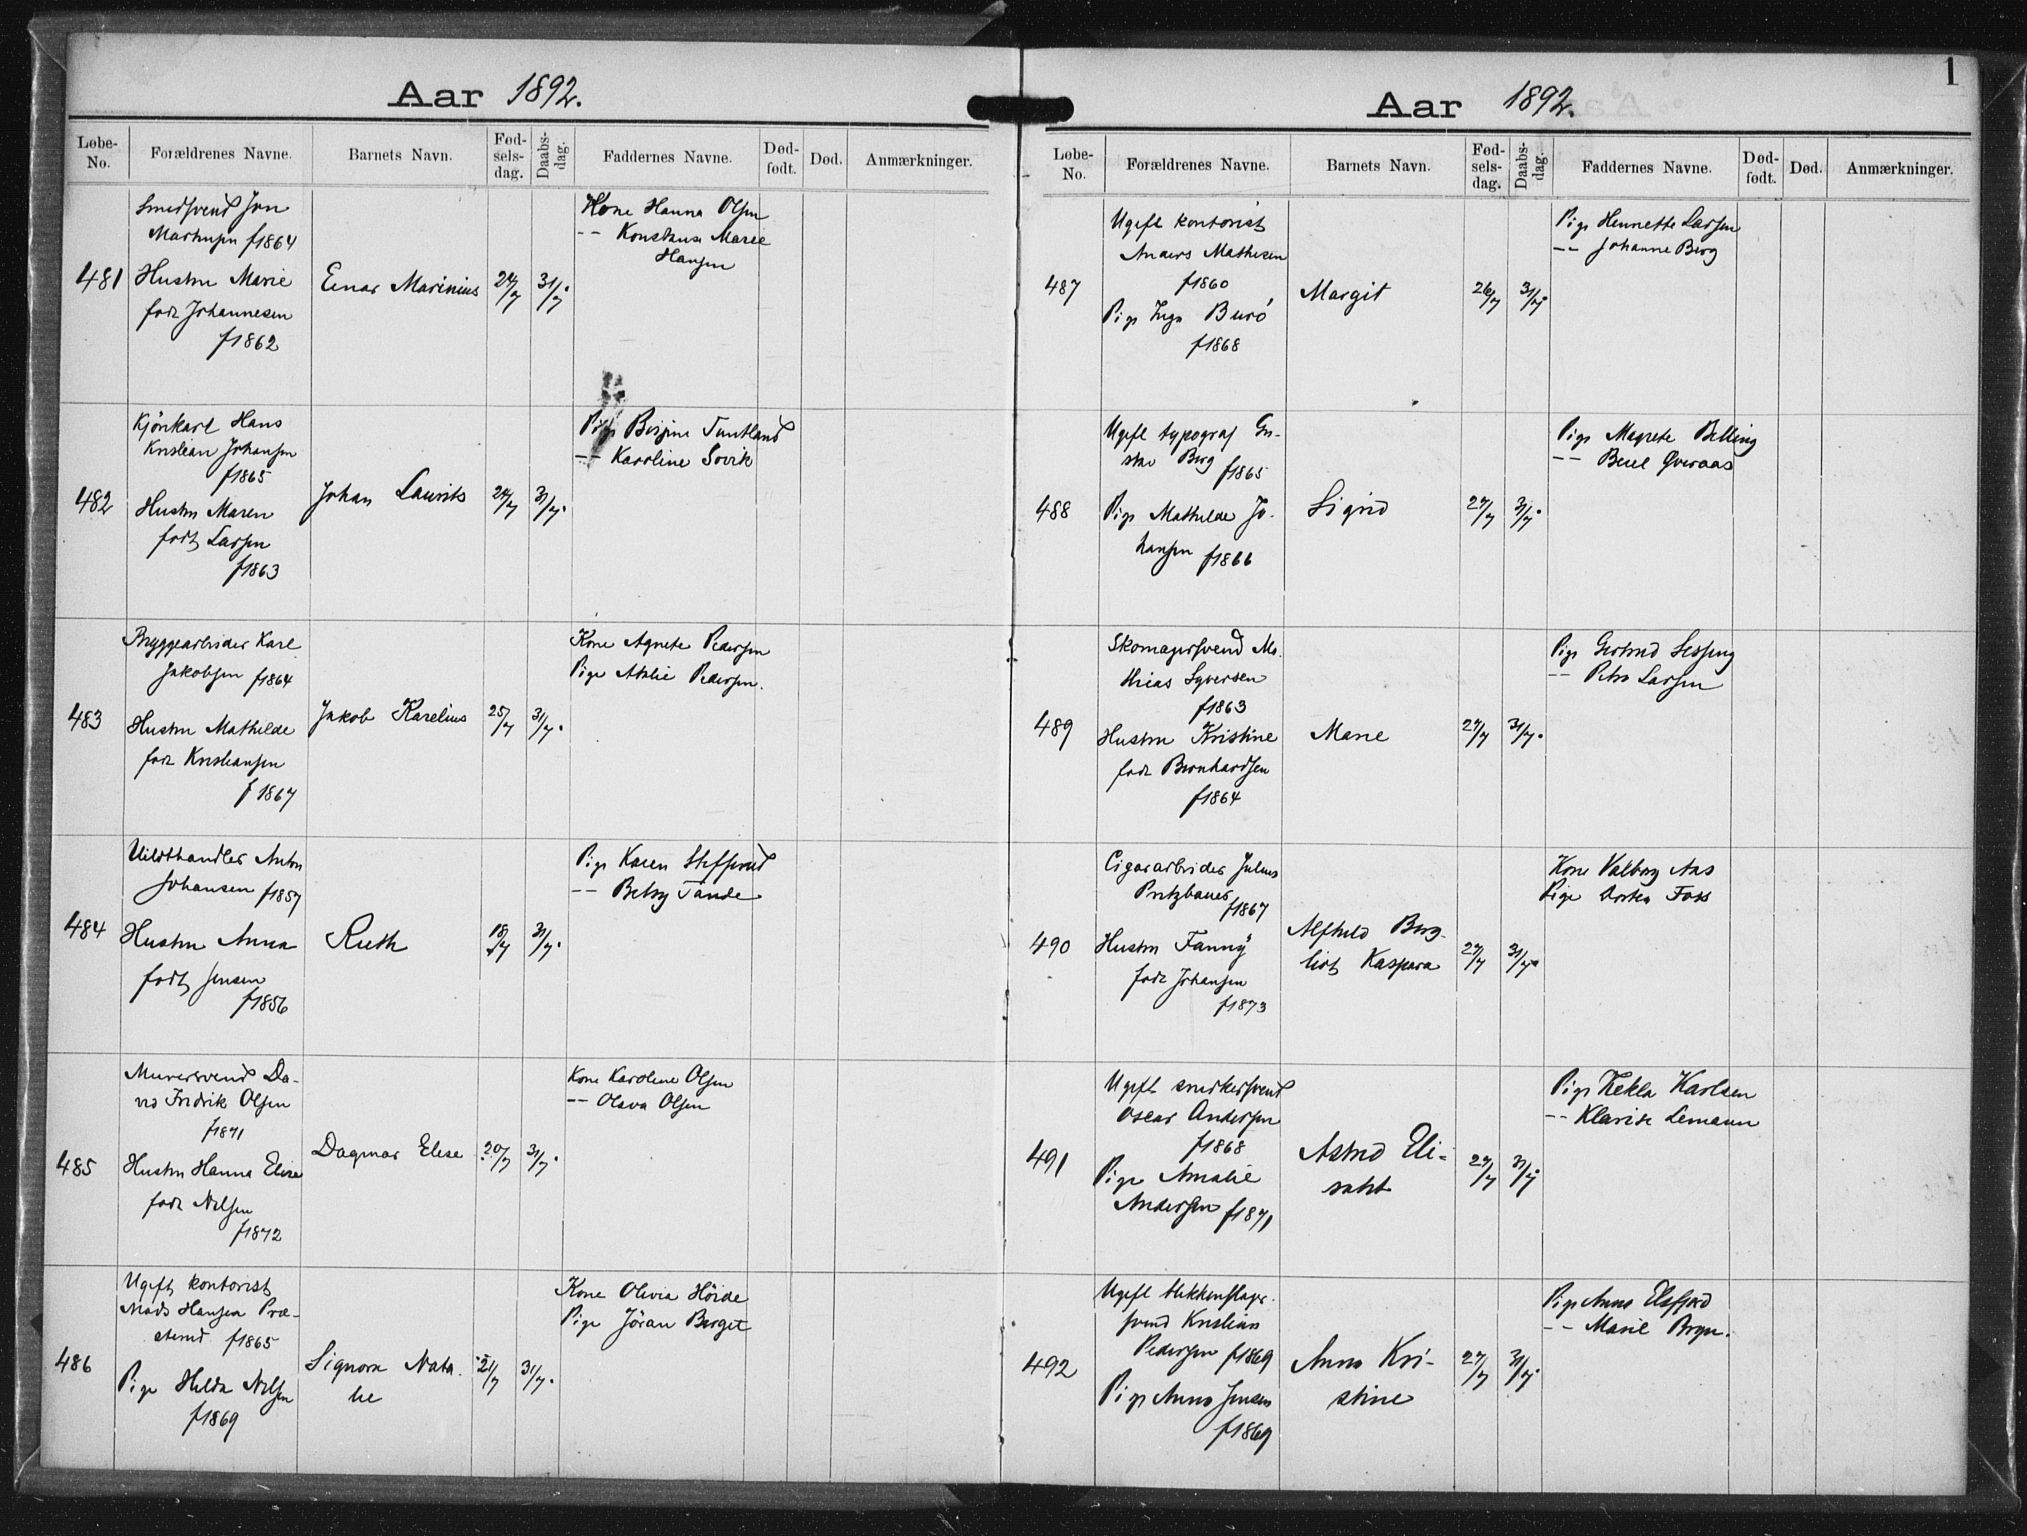 Aar 1892.
Løbe-No. Forældrenes Navne. Barnets Navn. Fød-sels-dag. Daabs-dag. Faddernes Navne. Død-født. Død. Anmærkninger.
481
Smedsvend Jon
Marthinsen f1864
Hustru Marie
født Johannesen
f1862
Einar Marinius
24/7
31/7.
Kone Hanna Olsen
-- Konstanse Marie
Hansen
482
Kjörekarl Hans
Kristian Johansen
f1865
Hustru Maren
født Larsen
f1863
Johan Laurits
24/7
31/7.
Pige Birgine Tuntland
-- Karoline Sovik
483
Bryggearbeider Karl
Jakobsen f1864
Hustru Mathilde
født Kristiansen
f1867
Jakob Karelius
25/7
31/7.
Kone Agnete Pedersen
Pige Atalie Pedersen.
484
Vildthandler Anton
Johansen f1857
Hustru Anna
født Jensen
f1856
Ruth
18/7
31/7.
Pige Karen
-- Betsy Tande
485
Murersvend Da-
vid Fredrik Olsen
f1871
Hustru Hanna Elise
født Nilsen
f1872
Dagmar Elise
20/7
31/7.
Kone Karoline Olsen
-- Olava Olsen
486
Ugift kontorist
Mads Hansen Præ-
sterud f1865
Pige Hilda Nilsen
f1869
Signora Nata-
lie
21/7
31/7.
Kone Olivia Höide
Pige Jöran Berget
1
Aar 1892.
Løbe-No. Forældrenes Navne. Barnets Navn. Fød-sels-dag. Daabs-dag. Faddernes Navne. Død-født. Død. Anmærkninger.
487
Ugift kontorist
Anders Mathisen
f1860
Pige Inga Burö
f1868
Margit
26/7
31/7.
Pige Henriette Larsen
-- Johanne Berg
488
Ugift typograf Gu-
stav Berg f1865
Pige Mathilde Jo-
hansen f1866
Sigrid
27/7
31/7.
Pige Magrete Billing
-- Beret Qveraas
489
Skomagersvend Ma-
thias Syversen
f1863
Hustru Kristine
født Bernhardsen
f1864
Marie
27/7
31/7.
Pige Gertrud
-- Petra Larsen
490
Cigararbeider Julius
Pritzbauer
f1867
Hustru Fanny
født Johansen
f1873
Alfhild Berg-
liot Kaspara
27/7
31/7.
Kone Valborg Aas
Pige Dortea Foss
491
Ugift snedkersvend
Oscar Andersen
f1868
Pige Amalie
Andersen f1871
Astrid Eli-
sabet
27/7
31/7.
Pige Tekla Karlsen
-- Klarise Lemann
492
Ugift blikkenslager-
svend Kristian
Pedersen f1869
Pige Anna Jensen
f1869
Anna Kri-
stine
27/7
31/7.
Pige Anna Elsfjord
-- Marie Bryn.